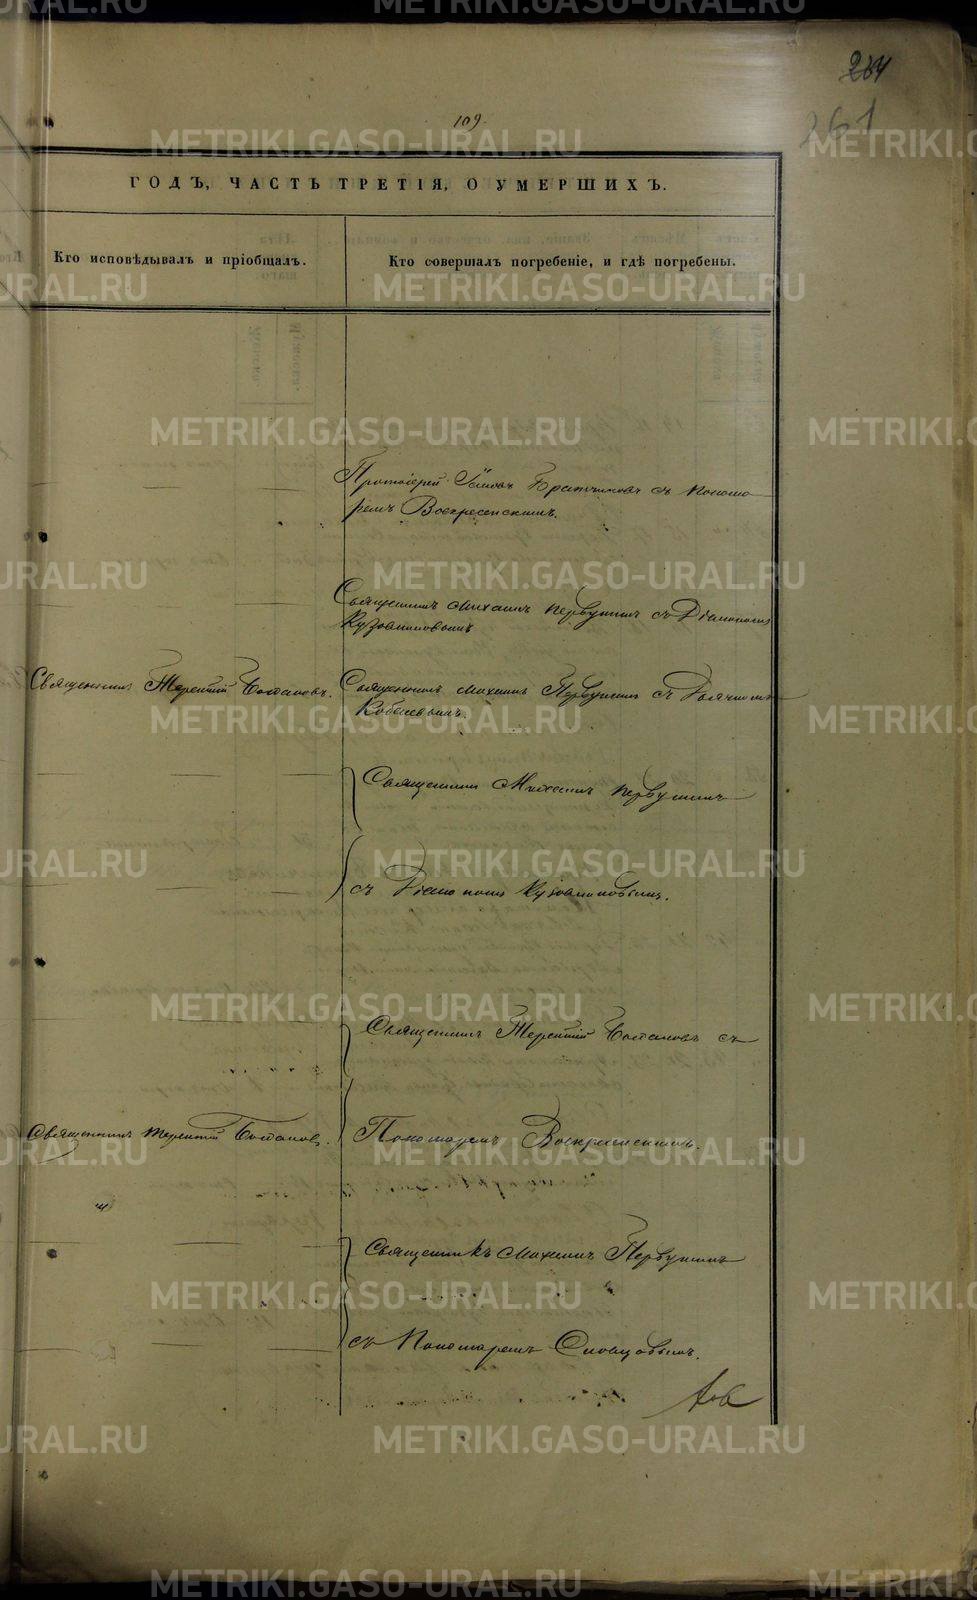 264
261
109.
ГОДЪ, ЧАСТЬ ТРЕТІЯ, О УМЕРШИХЪ.
Кто исповѣдывалъ и пріобщалъ.
Кто совершалъ погребеніе, и гдѣ погребены.
Протоіерей Іаковъ Братчиковъ съ Понома
ремъ Воскресенскимъ.
Священникъ Михаилъ Первушинъ съ Діакономъ
Кузовниковымъ
Священникъ Терентій
Священникъ Михаилъ Первушинъ съ Дьячкомъ
Священникъ Михаилъ Первушинъ
съ Діакономъ Кузовниковымъ.
Священникъ Терентій съ
Священникъ Терентій
Пономаремъ Воскресенскимъ.
Священникъ Михаилъ Первушинъ
съ Пономаремъ Словцовымъ.
METRIKI.GASO-URAL.RU